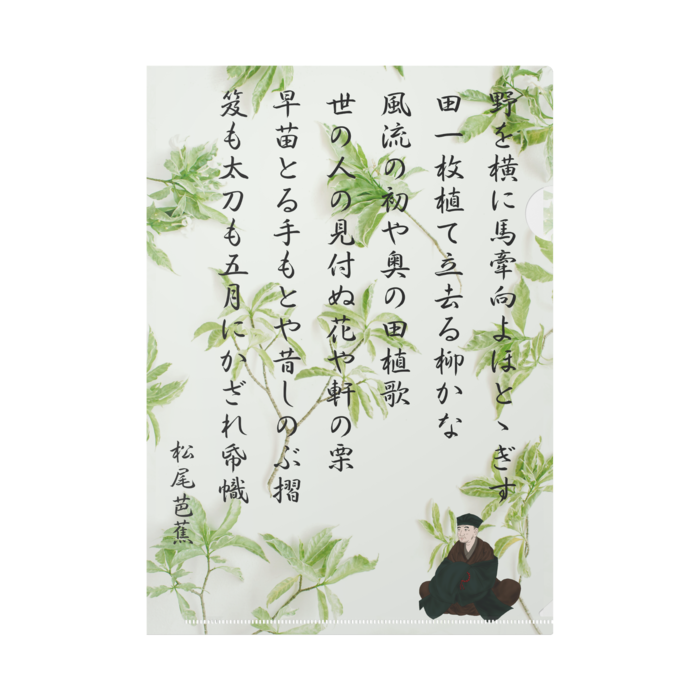 野を横に馬牽向よほとゝぎす
田一枚植て立去る柳かな
風流の初や奥の田植歌
世の人の見付ぬ花や軒の栗
早苗とる手もとや昔しのぶ摺
笈も太刀も五月にかざれ帋幟
松尾芭蕉